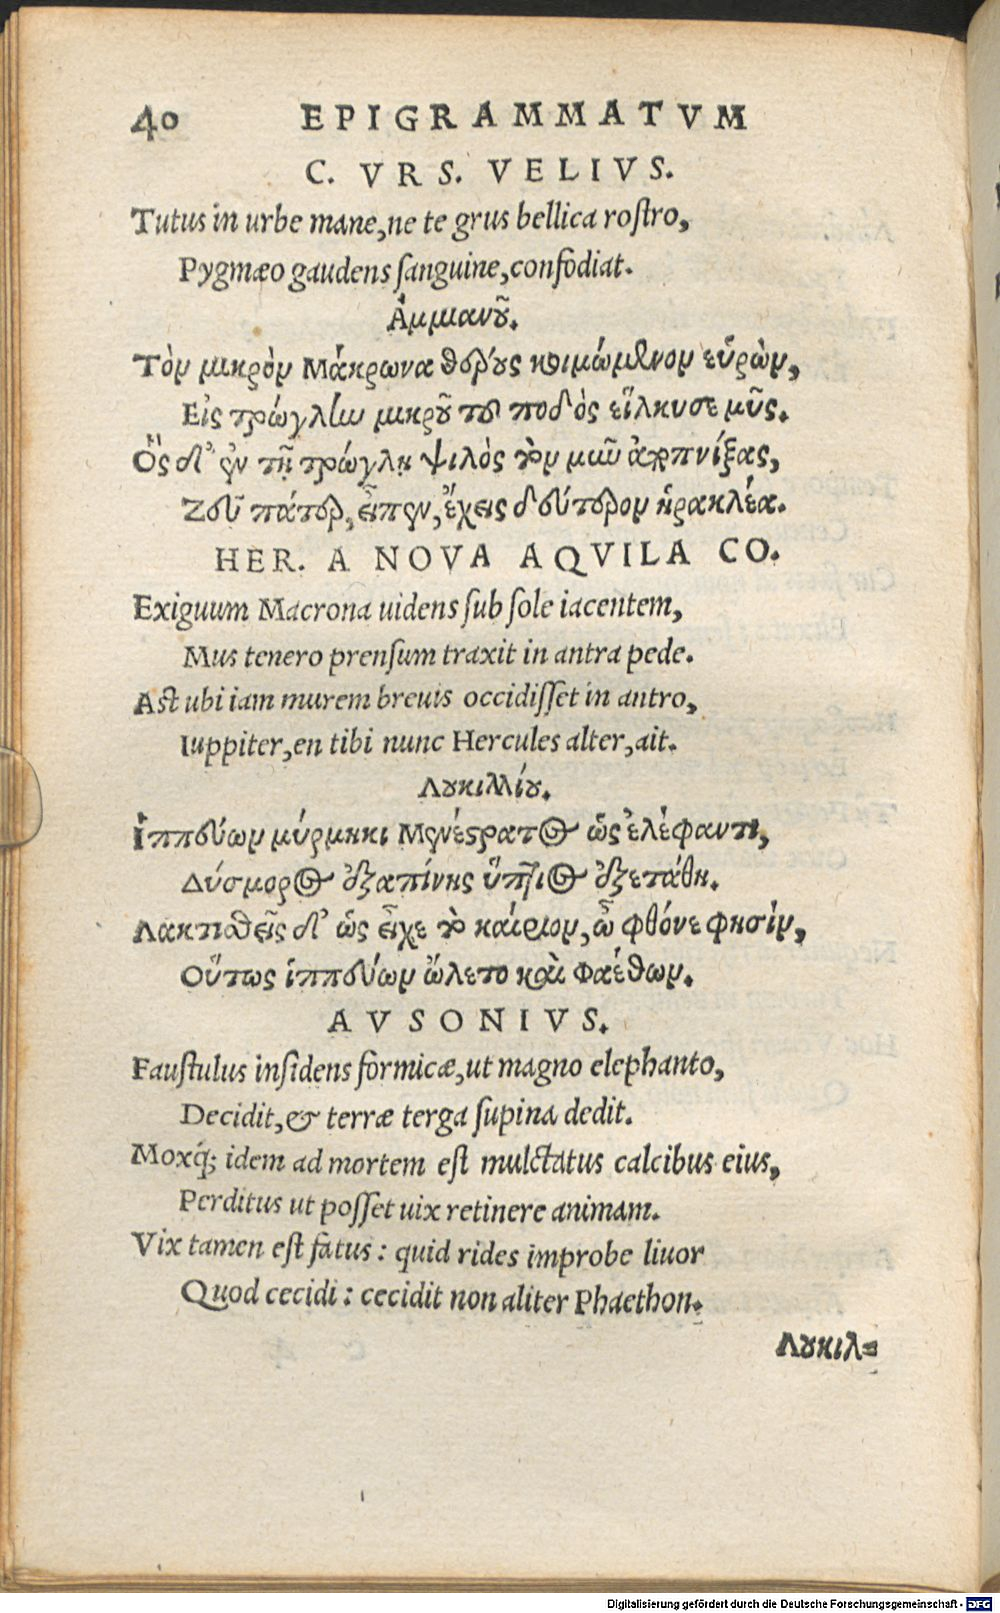 40 EPIGRAMMATVM
C. VRS. VELIVS.
Tutus in urbe mane, ne te grus bellica rostro,
Pygmæo gaudens sanguine, confodiat.
Ἀμμιανοῦ.
Τὸν μικρὸν Μάκρωνα θέρους κοιμώμενον εὑρὼν,
Εἰς τρώγλην μικροῦ τοῦ ποδὸς εἵλκυσε μῦς.
Ὃς δ' ἐν τῇ τρώγλῃ ψιλὸς τὸν μῦν ἀποπνίξας,
Ζεῦ πάτερ, εἶπεν, ἔχεις δεύτερον ἡρακλέα.
HER. A NOVA AQVILA CO.
Exiguum Macrona uidens sub sole iacentem,
Mus tenero prensum traxit in antra pede.
Ast ubi iam murem breuis occidisset in antro,
Iuppiter, en tibi nunc Hercules alter, ait.
Λουκιλλίου.
Ἱππεύων μύρμηκι Μενέστρατος ὡς ἐλέφαντι,
Δύσμορος ἐξαπίνης ὕπτιος ἐξετάθη.
Λακτισθεὶς δ' ὡς εἶχε τὸ καίριον, ὦ φθόνε φησὶν,
Οὕτως ἱππεύων ὤλετο καὶ Φαέθων.
AVSONIVS.
Faustulus insidens formicæ, ut magno elephanto,
Decidit, & terræ terga supina dedit.
Moxq́; idem ad mortem est mulctatus calcibus eius,
Perditus ut posset uix retinere animam.
Vix tamen est fatus: quid rides improbe liuor
Quod cecidi: cecidit non aliter Phaethon.
Λουκιλ=
Digitalisierung gefördert durch die Deutsche Forschungsgemeinschaft - DFG